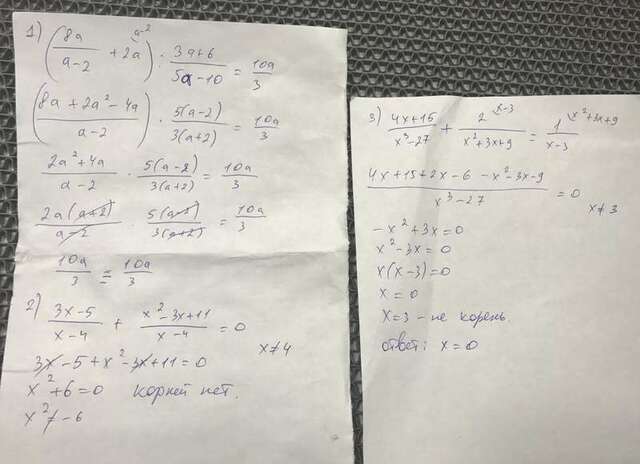 1) (8a/(a-2) + 2a^(a-2)) : (3a+6)/(5a-10) = 10a/3
((8a+2a²-4a)/(a-2)) · 5(a-2)/(3(a+2)) = 10a/3
(2a²+4a)/(a-2) · 5(a-2)/(3(a+2)) = 10a/3
2a(a+2)/(a-2) · 5(a-2)/(3(a+2)) = 10a/3
10a/3 = 10a/3
2) (3x-5)/(x-4) + (x²-3x+11)/(x-4) = 0
x≠4
3x-5+x²-3x+11=0
x²+6=0 корней нет.
x²≠-6
3) (4x+15)/(x³-27) + 2^(x-3)/(x²+3x+9) = 1^(x²+3x+9)/(x-3)
(4x+15+2x-6-x²-3x-9)/(x³-27) = 0
x≠3
-x²+3x=0
x²-3x=0
x(x-3)=0
x=0
x=3 - не корень.
ответ: x=0